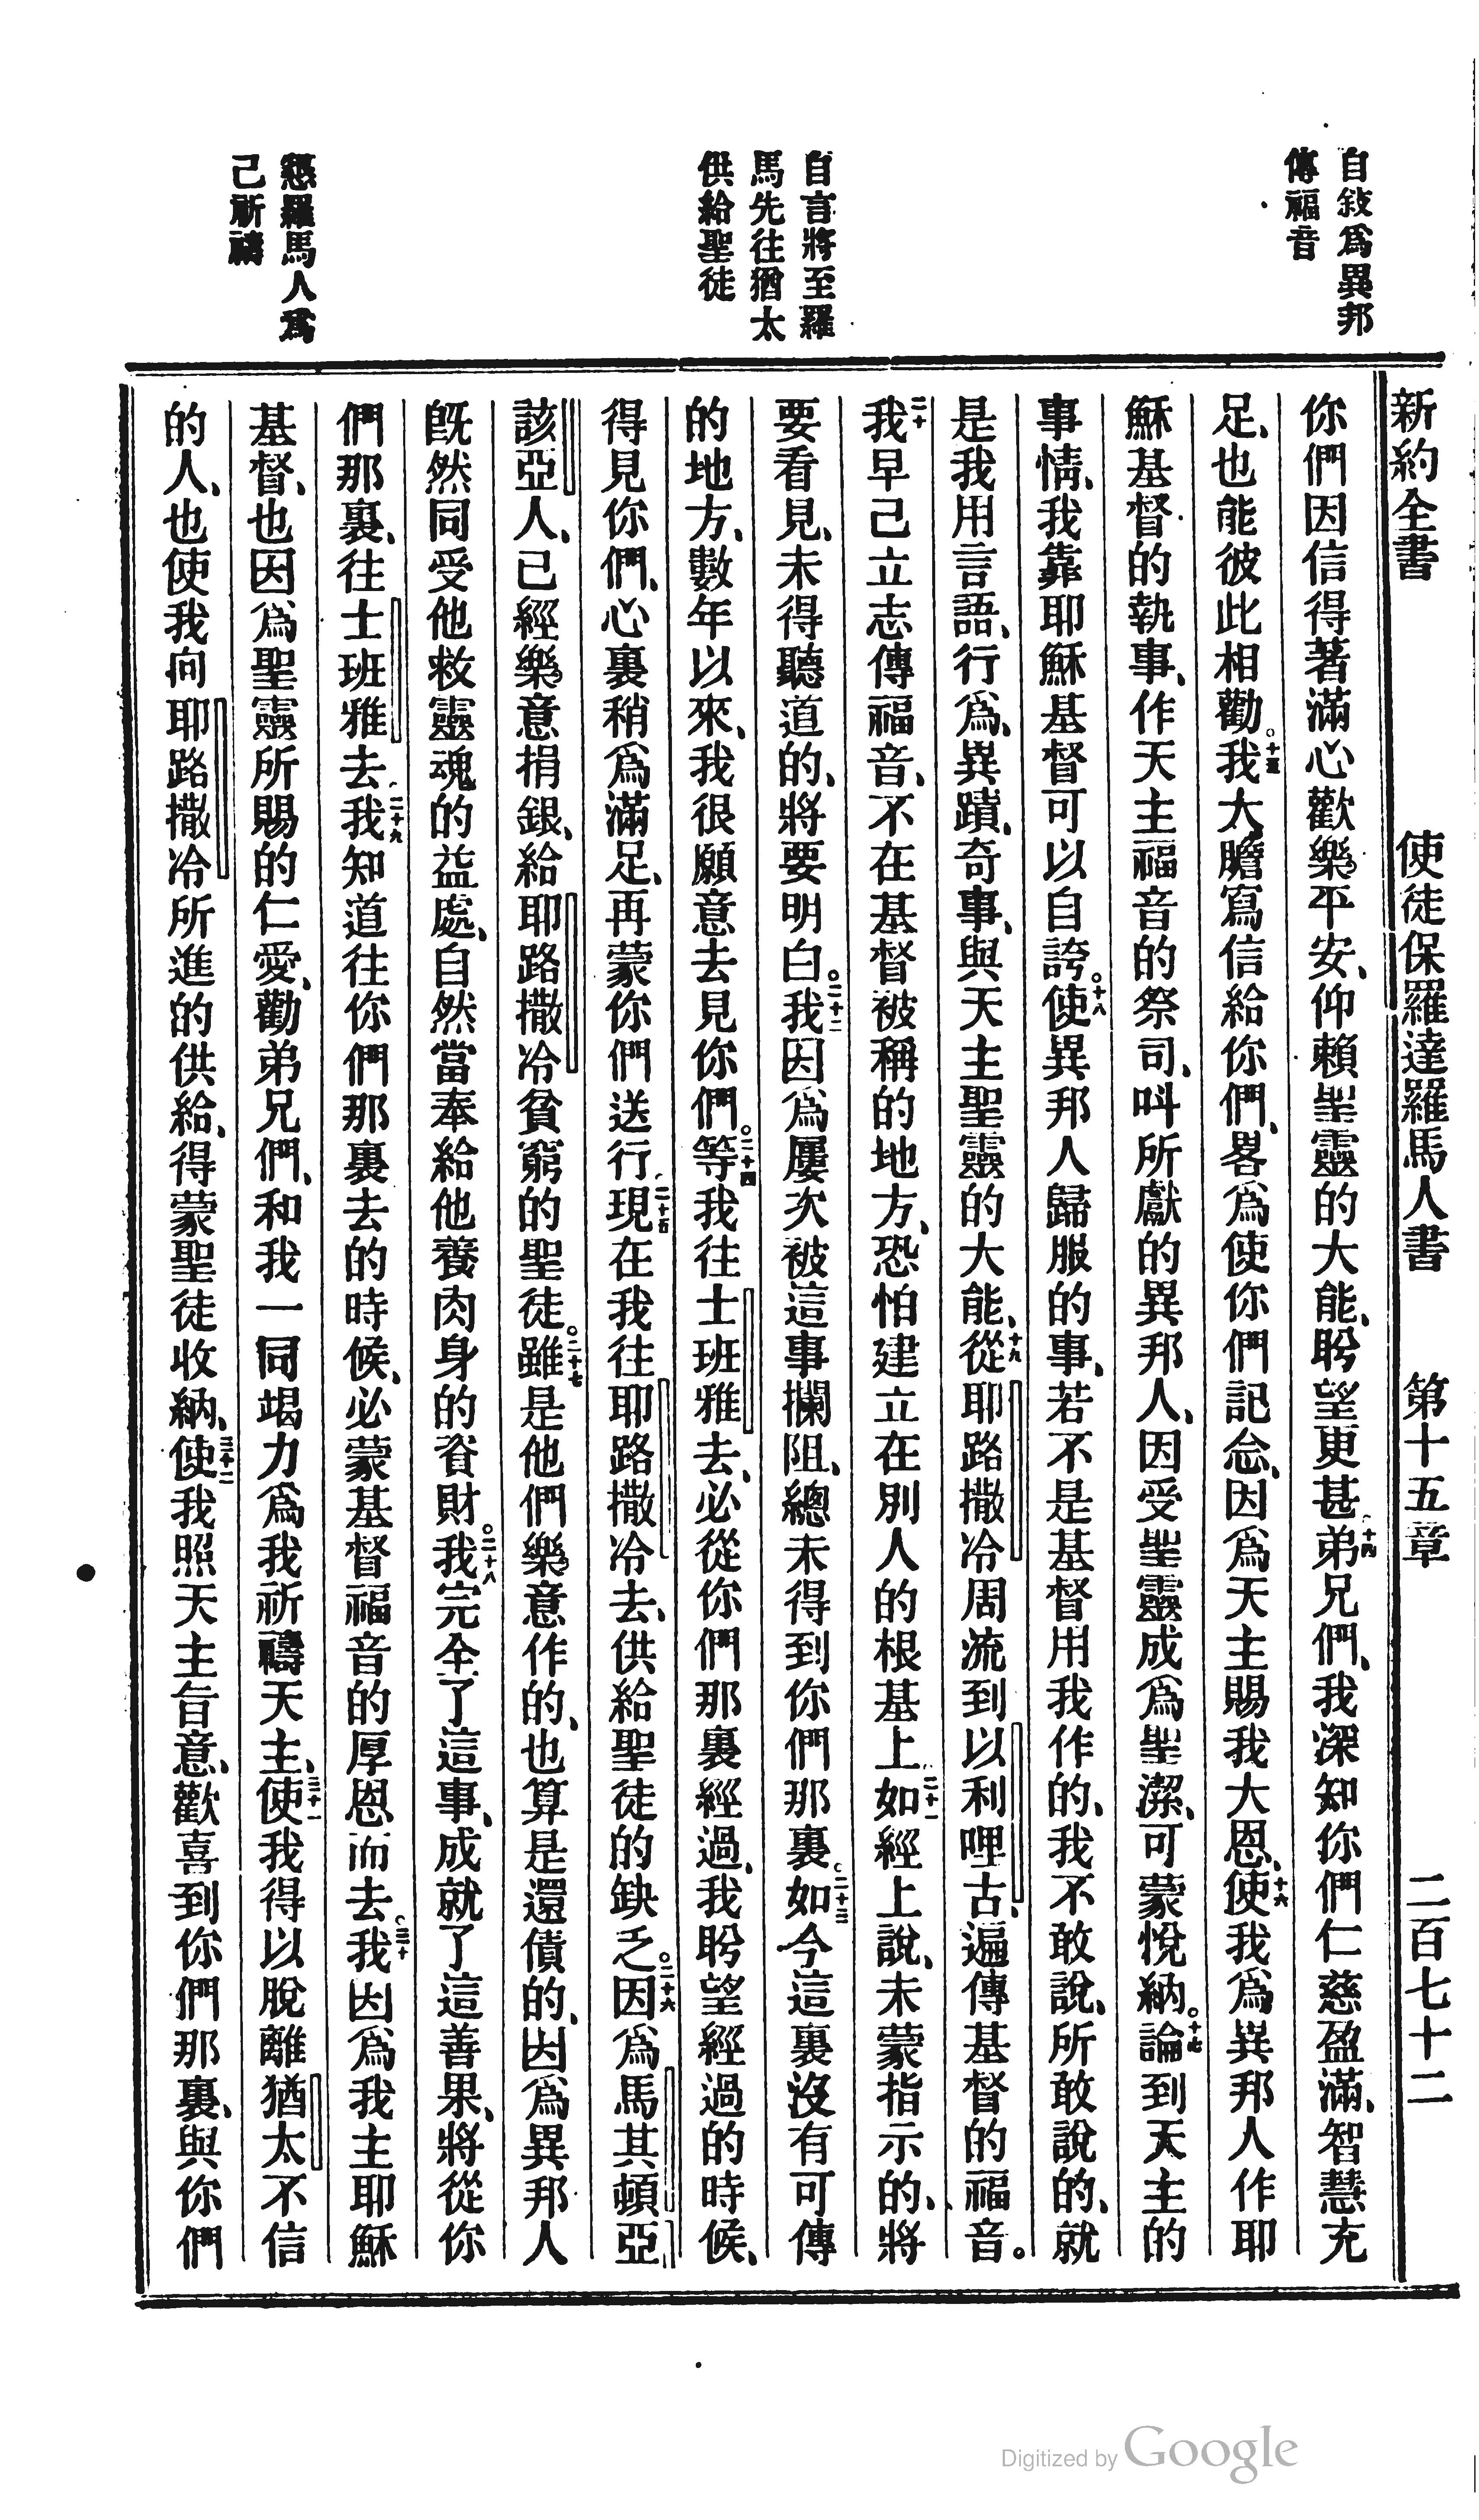 自敍爲異邦
傳福音
自言將至羅
馬先往猶太
供給聖徒
懇羅馬人爲
己祈禱
新約全書 使徒保羅達羅馬人書 第十五章 二百七十二
你們因信得著滿心歡樂平安、仰賴聖靈的大能、盼望更甚。十四弟兄們、我深知你們仁慈盈滿、智慧充
足、也能彼此相勸。十五我大膽寫信給你們、畧爲使你們記念、因爲天主賜我大恩、十六使我爲異邦人作耶
穌基督的執事、作天主福音的祭司、呌所獻的異邦人、因受聖靈成爲聖潔、可蒙悅納。十七論到天主的
事情、我靠耶穌基督可以自誇。十八使異邦人歸服的事、若不是基督用我作的、我不敢說、所敢說的、就
是我用言語、行爲、異蹟、奇事、與天主聖靈的大能、十九從耶路撒冷周流到以利哩古、遍傳基督的福音。
二十我早已立志傳福音、不在基督被稱的地方、恐怕建立在別人的根基上。二十一如經上說、未蒙指示的、將
要看見、未得聽道的、將要明白。二十二我因爲屢次被這事攔阻、總未得到你們那裏。二十三如今這裏沒有可傳
的地方、數年以來、我很願意去見你們。二十四等我往士班雅去、必從你們那裏經過、我盼望經過的時候、
得見你們、心裏稍爲滿足、再蒙你們送行。二十五現在我往耶路撒冷去、供給聖徒的缺乏。二十六因爲馬其頓亞
該亞人、已經樂意捐銀、給耶路撒冷貧窮的聖徒。二十七雖是他們樂意作的、也算是還債的、因爲異邦人
旣然同受他救靈魂的益處、自然當奉給他養肉身的貲財。二十八我完全了這事、成就了這善果、將從你
們那裏、往士班雅去。二十九我知道往你們那裏去的時候、必蒙基督福音的厚恩而去。三十我因爲我主耶穌
基督、也因爲聖靈所賜的仁愛、勸弟兄們、和我一同竭力爲我祈禱天主、三十一使我得以脫離猶太不信
的人、也使我向耶路撒冷所進的供給、得蒙聖徒收納、三十二使我照天主旨意、歡喜到你們那裏、與你們
Digitized by Google